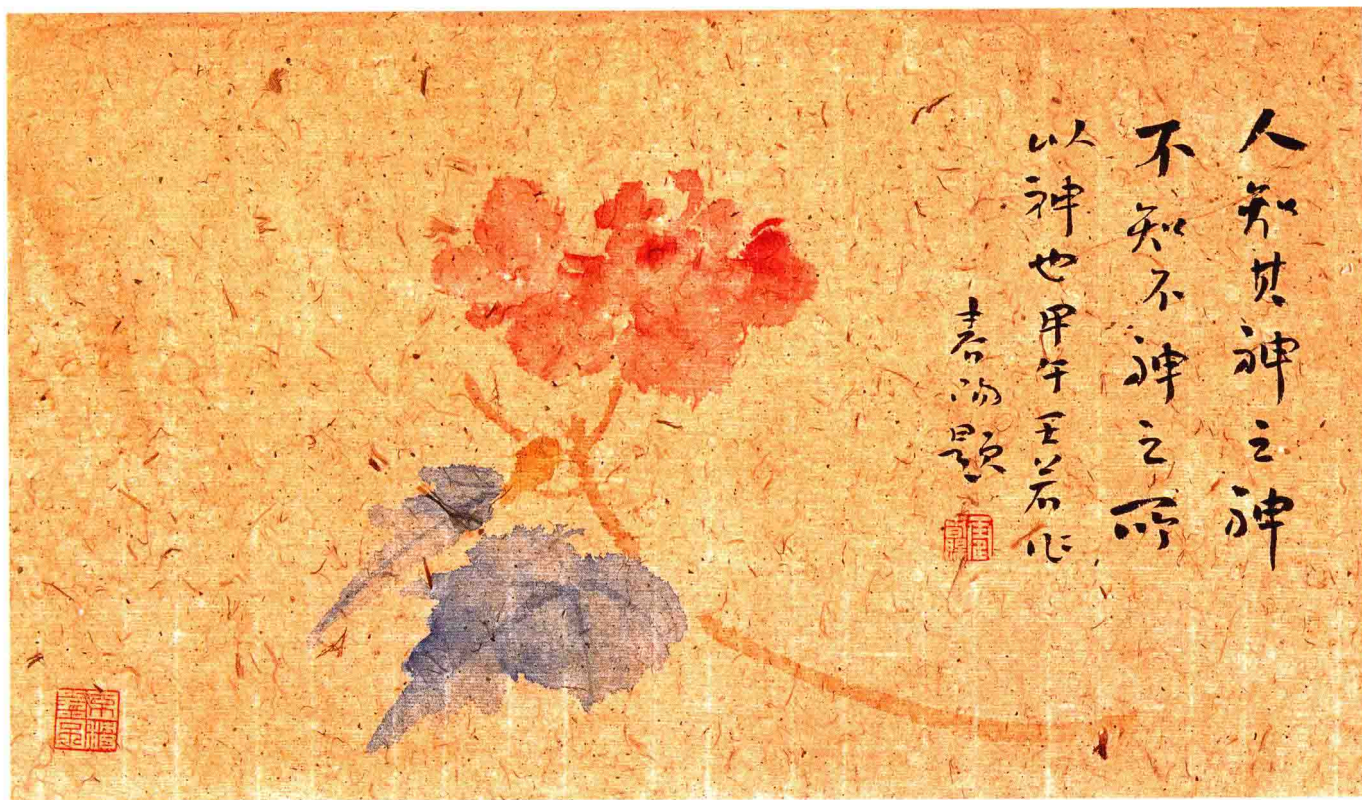 人知其神之神
不知不神之所
以神也甲午王若作
春题